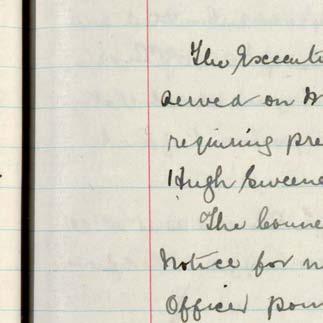 The Executi
served on W
requiring pre
Hugh Sweene
The Counc
Notice for n
Officer poin